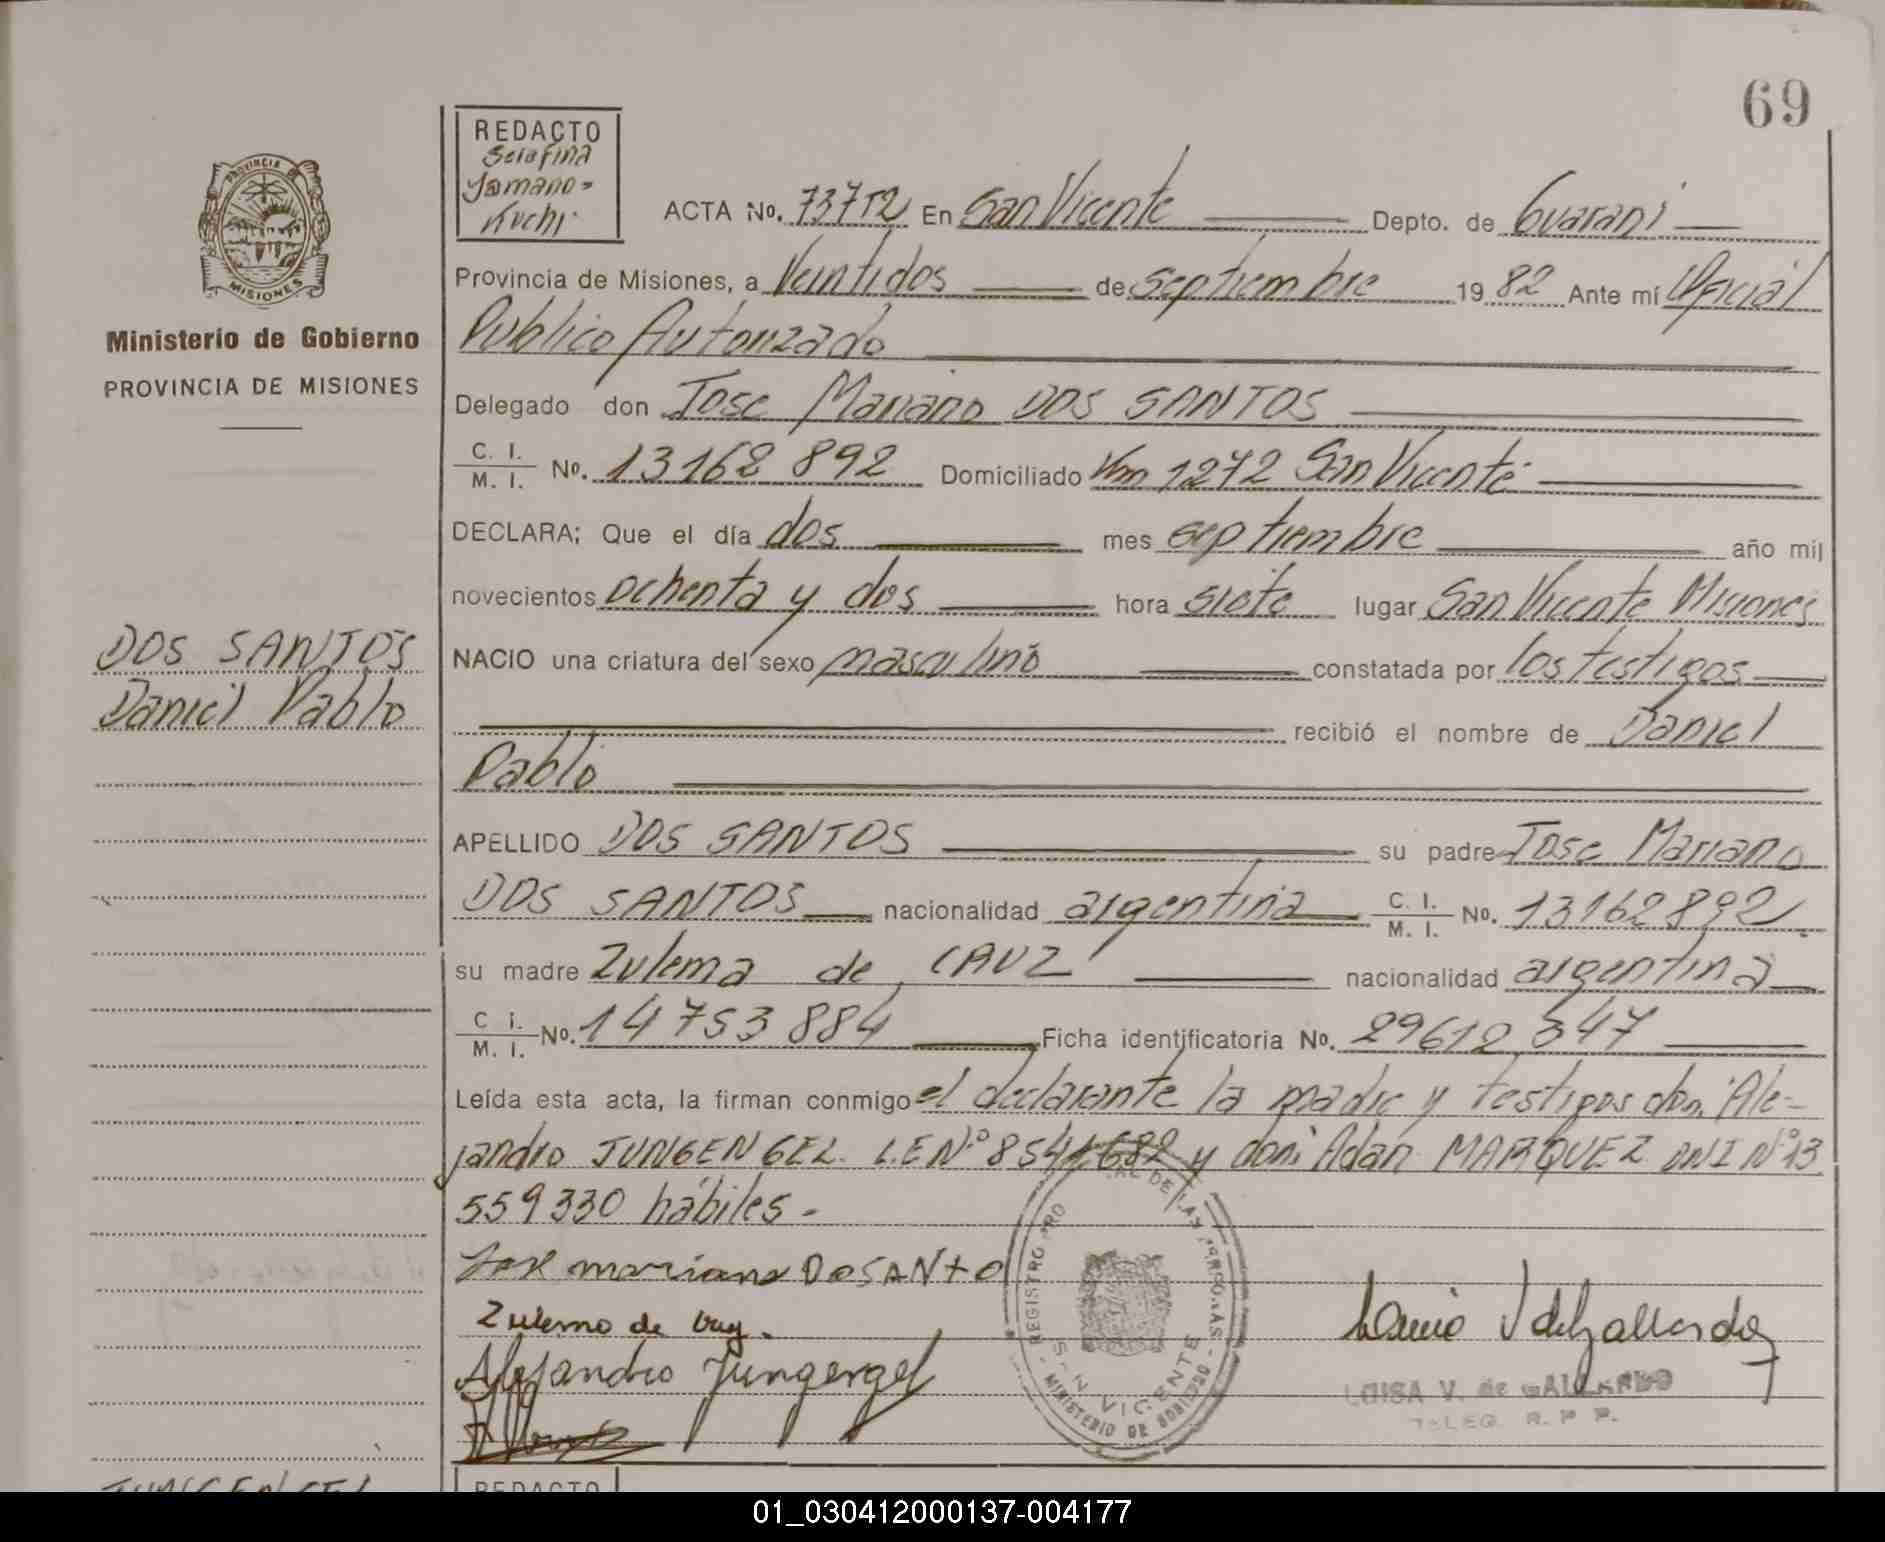 69
REDACTO
Serafina
Yamano-
Kuchi
PROVINCIA
MISIONES
Ministerio de Gobierno
PROVINCIA DE MISIONES
ACTA No. 737T2 En San Vicente Depto. de Guarani
Provincia de Misiones, a Veintidos de septiembre 1982 Ante mí Oficial
Publico Autorizado
Delegado don Jose Mariano DOS SANTOS
C. I. / M. I. No. 13162 892 Domiciliado Km 1272 San Vicente
DECLARA; Que el día dos mes septiembre año mil
novecientos ochenta y dos hora siete lugar San Vicente Misiones
DOS SANTOS
Daniel Pablo
NACIO una criatura del sexo masculino constatada por los testigos
recibió el nombre de Daniel
Pablo
APELLIDO DOS SANTOS su padre Jose Mariano
DOS SANTOS nacionalidad argentina C. I. / M. I. No. 13162892
su madre Zulema de CRUZ nacionalidad argentina
C. I. / M. I. No. 14753884 Ficha identificatoria No. 29612347
Leída esta acta, la firman conmigo el declarante la madre y testigos don: Ale-
jandro JUNGENGEL L.E Nº 8541682 y don: Adan MARQUEZ DNI Nº 13
559330 hábiles.-
Jose mariano DOSANTO
Zulema de Cruz.
Alejandro Jungengel
REGISTRO PRO AL DE LAS PERSONAS
SAN VICENTE
MINISTERIO DE GOBIERNO
LUISA V. de GALLARDO
DELEG. R. P. P.
JUNGENGEL
REDACTO
01_030412000137-004177